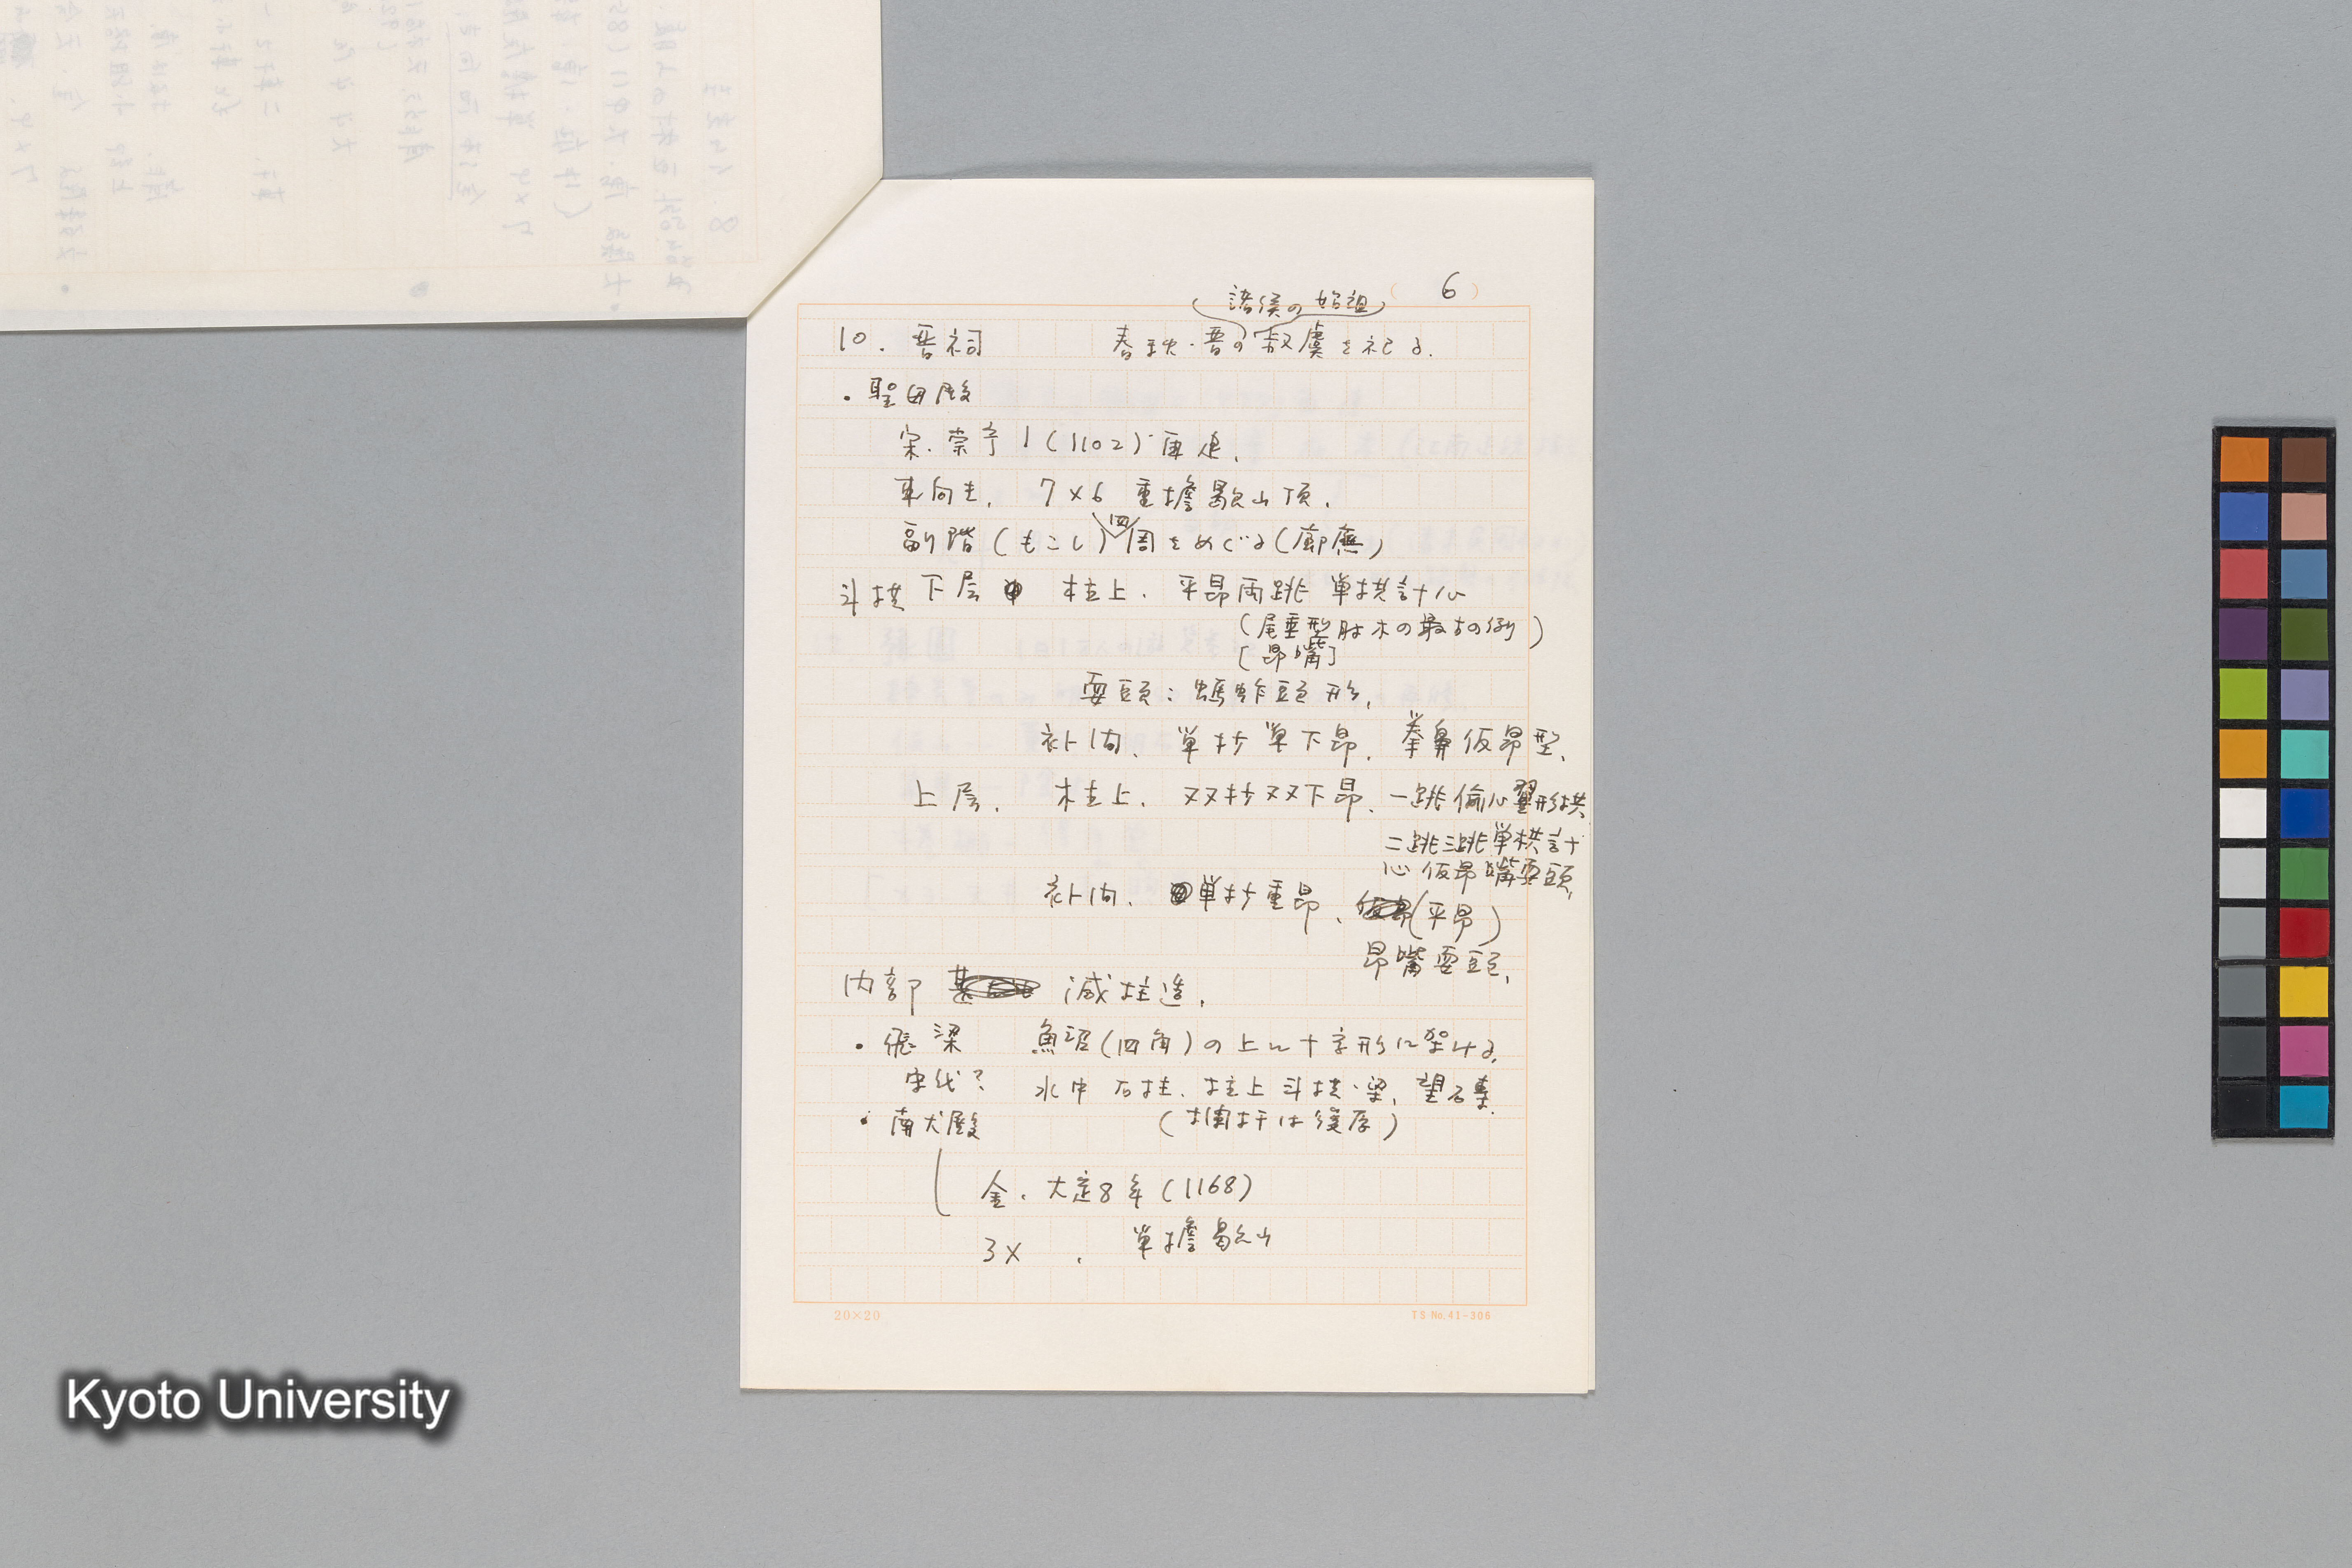 (6)
諸侯の始祖
10. 晋祠 春秋・晋の叔虞を祀る.
・聖母殿
宋.崇寧1(1102)重建.
東向き. 7×6 重檐歇山頂.
副階(もこし)四周をめぐる(廊廡)
斗栱 下層 柱上. 平昂両跳 単栱計心
(尾垂型肘木の最古の例)
[昂嘴]
耍頭:螞蚱頭形.
補間. 単抄単下昂. 拳鼻仮昂型.
上層. 柱上. 双抄双下昂. 一跳偸心翼形栱
二跳三跳単栱計
心 仮昂嘴耍頭.
補間. 単抄重昂. (平昂)
昂嘴耍頭.
内部 減柱造.
・飛梁 魚沼(四角)の上に十字形に架ける.
宋代? 水中 石柱. 柱上斗栱・梁.
(欄杆は後存)
・献殿
金. 大定8年(1168)
3× . 単檐歇山
20×20
TS No.41-306
Kyoto University